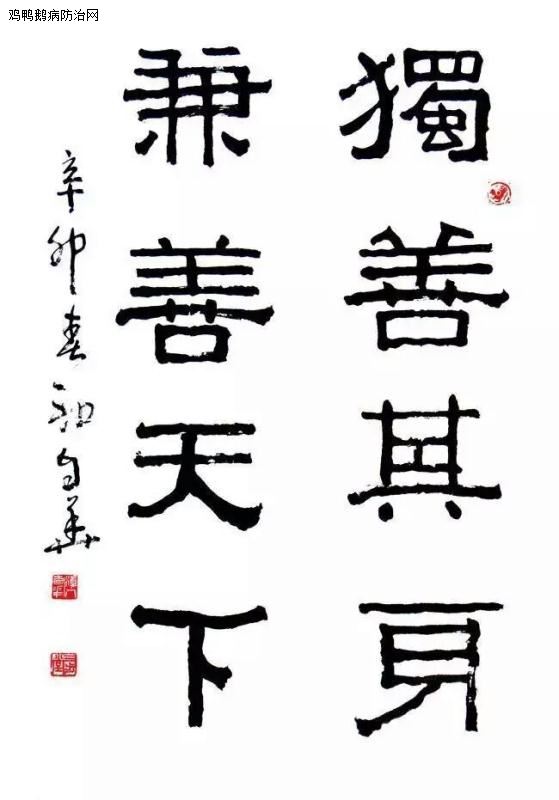 鸡鸭鹅病防治网
獨善其身
兼善天下
辛卯春初自華